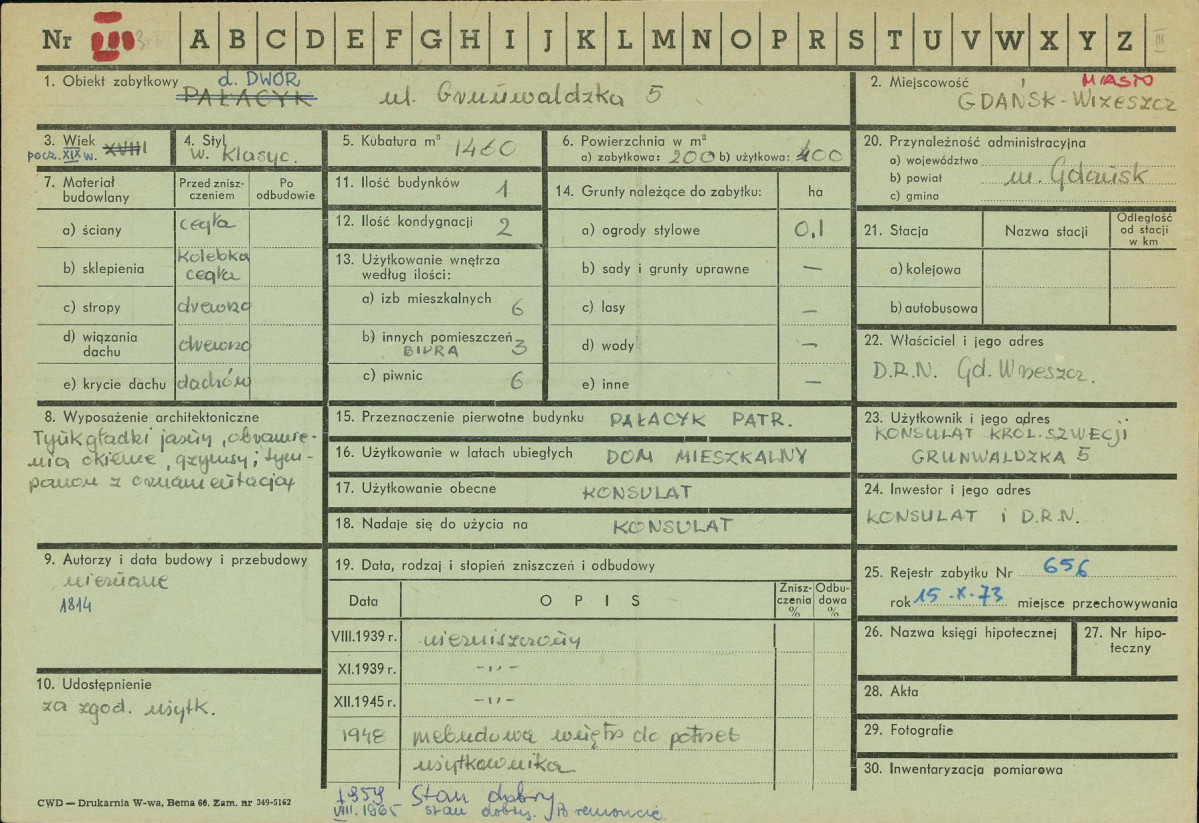 Nr III A B C D E F G H I J K L M N O P R S T U V W X Y Z III
1. Obiekt zabytkowy d. DWÓR
PAŁACYK ul. Grunwaldzka 5
2. Miejscowość MIASTO
GDAŃSK-WRZESZCZ
3. Wiek XVIII
pocz. XIX w.
4. Styl
w. klasyc.
5. Kubatura m³ 1460
6. Powierzchnia w m²
a) zabytkowa: 200 b) użytkowa: 400
7. Materiał budowlany
Przed zniszczeniem
Po odbudowie
a) ściany cegła
b) sklepienia kolebka cegła
c) stropy drewno
d) wiązania dachu drewno
e) krycie dachu dachów
8. Wyposażenie architektoniczne
Tynk gładki jasny, obramie-
nia okienne, gzymsy; tym-
panon z ornamentacją
9. Autorzy i data budowy i przebudowy
nieznane
1814
10. Udostępnienie
za zgod. użytk.
11. Ilość budynków 1
12. Ilość kondygnacji 2
13. Użytkowanie wnętrza
według ilości:
a) izb mieszkalnych 6
b) innych pomieszczeń 3
BIURA
c) piwnic 6
14. Grunty należące do zabytku: ha
a) ogrody stylowe 0,1
b) sady i grunty uprawne —
c) lasy —
d) wody —
e) inne —
15. Przeznaczenie pierwotne budynku PAŁACYK PATR.
16. Użytkowanie w latach ubiegłych DOM MIESZKALNY
17. Użytkowanie obecne KONSULAT
18. Nadaje się do użycia na KONSULAT
19. Data, rodzaj i stopień zniszczeń i odbudowy
Data OPIS Zniszczenia % Odbudowa %
VIII.1939 r. niezniszczony
XI.1939 r. -„-
XII.1945 r. -„-
1948 przebudowa wnętrz do potrzeb
użytkownika
1959 Stan dobry
VIII.1965 stan dobry. Po remoncie.
20. Przynależność administracyjna
a) województwo
b) powiat m. Gdańsk
c) gmina
21. Stacja Nazwa stacji Odległość od stacji w km
a) kolejowa
b) autobusowa
22. Właściciel i jego adres
D.R.N. Gd. Wrzeszcz.
23. Użytkownik i jego adres
KONSULAT KRÓL. SZWECJI
GRUNWALDZKA 5
24. Inwestor i jego adres
KONSULAT i D.R.N.
25. Rejestr zabytku Nr 656
rok 15-X-73 miejsce przechowywania
26. Nazwa księgi hipotecznej
27. Nr hipoteczny
28. Akta
29. Fotografie
30. Inwentaryzacja pomiarowa
CWD — Drukarnia W-wa, Bema 60. Zam. nr 349-5162